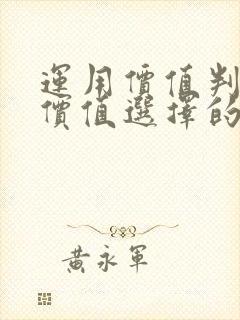 運用價值判
價值選擇的
黃永軍